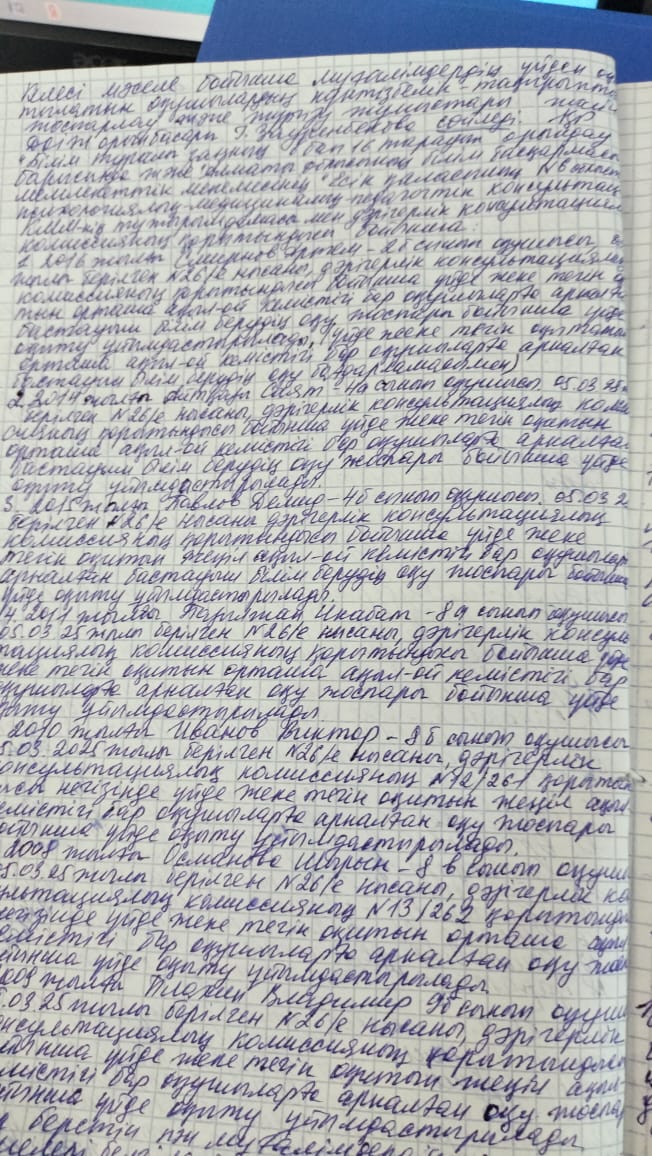 Келесі мәселе бойынша мұғалімдердің үйден оқ
тылатын оқушылардың күнтізбелік-тақырыптық
жоспарлау және жүргізу жұмыстары
ДОІЖ орынбасары Г. сөйледі. ҚР
"Білім туралы" заңның 8 бап 16 тармағын орындау
барысында және Алматы облысының білім басқармасы
мемлекеттік мекемесінің "Есік қаласының №6
психологиялық-медициналық-педагогтік консультация
КММ-нің тұжырымдамасы мен дәрігерлік консультациялық
комиссияның қорытындысы бойынша:
1. 2016 жылғы Смирнов Артем - 2б сынып оқушысы,
жылы берілген №26/е нысаны, дәрігерлік консультациялық
комиссияның қорытындысы бойынша үйде жеке тегін оқы
тын орташа ақыл-ой кемістігі бар оқушыларға арналға
бастауыш білім берудің оқу жоспары бойынша үйде
оқыту ұйымдастырылады. (үйде жеке тегін оқытатын
орташа ақыл-ой кемістігі бар оқушыларға арналған
бастауыш білім берудің оқу бағдарламасымен)
2. 2014 жылғы Саят - 4а сынып оқушысы. 05.03.25
берілген №26/е нысаны, дәрігерлік консультациялық коми
ссияның қорытындысы бойынша үйде жеке тегін оқитын
орташа ақыл-ой кемістігі бар оқушыларға арналған
бастауыш білім берудің оқу жоспары бойынша үйде
оқыту ұйымдастырылады.
3. 2015 жылғы Павлов Демид - 4б сынып оқушысы. 05.03.2
берілген №26/е нысаны дәрігерлік консультациялық
комиссияның қорытындысы бойынша үйде жеке
тегін оқитын жеңіл ақыл-ой кемістігі бар оқушылар
арналған бастауыш білім берудің оқу жоспары бойынша
үйде оқыту ұйымдастырылады.
4. 2011 жылғы Инабат - 8а сынып оқушысы
05.03.25 жылы берілген №26/е нысаны, дәрігерлік консуль
тациялық комиссияның қорытындысы бойынша үйде
жеке тегін оқитын орташа ақыл-ой кемістігі бар
оқушыларға арналған оқу жоспары бойынша үйде
оқыту ұйымдастырылады.
2010 жылғы Иванов Виктор - 8б сынып оқушысы
5.03.2025 жылы берілген №26/е нысаны, дәрігерлік
онсультациялық комиссияның №12/261 қорытын
ысы негізінде үйде жеке тегін оқитын жеңіл ақыл
кемістігі бар оқушыларға арналған оқу жоспары
ойынша үйде оқыту ұйымдастырылады.
2008 жылғы Османова Шырын - 8в сынып оқушы
05.03.25 жылы берілген №26/е нысаны, дәрігерлік ко
ультациялық комиссияның №13/262 қорытынды
негізінде үйде жеке тегін оқитын орташа ақыл
кемістігі бар оқушыларға арналған оқу жосп
йынша үйде оқыту ұйымдастырылады.
2009 жылғы Владимир 9б сынып оқушы
5.03.25 жылы берілген №26/е нысаны, дәрігерлік
онсультациялық комиссияның қорытындысы
ойынша үйде жеке тегін оқитын жеңіл ақыл-
емістігі бар оқушыларға арналған оқу жоспар
йынша үйде оқыту ұйымдастырылады
беретін пән мұғалімдері